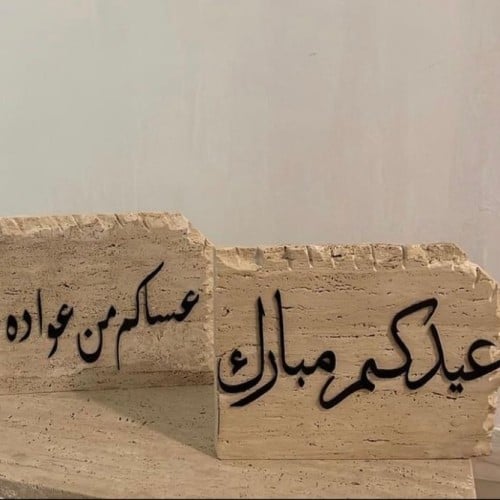 عيدكم مبارك
عساكم من عواده